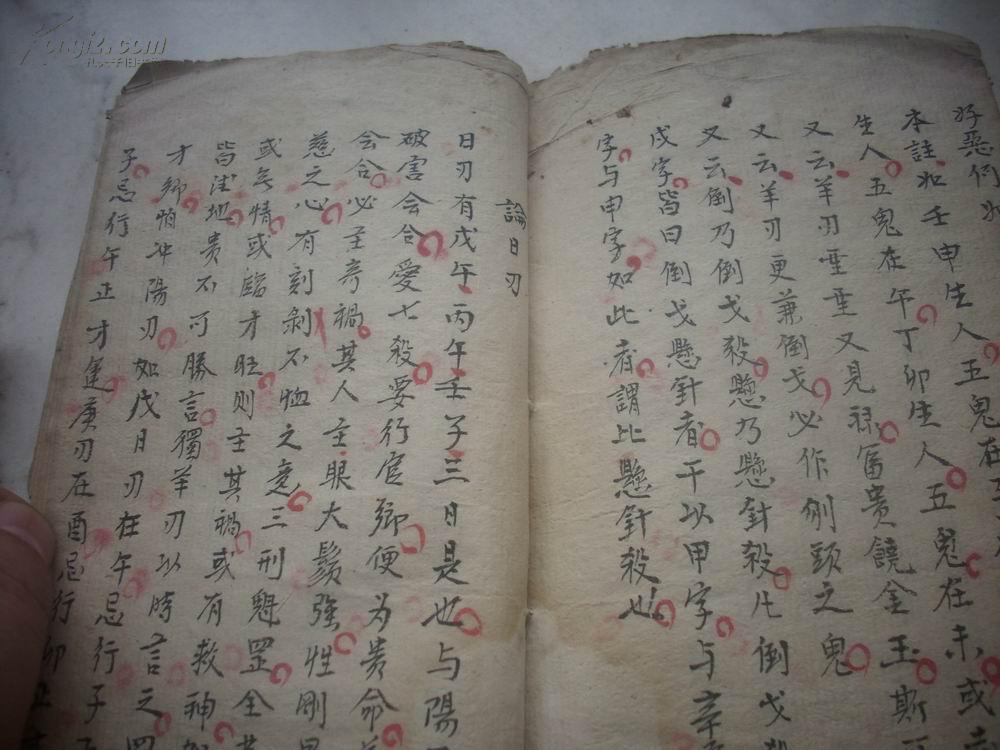 好惡例如
本註如壬申生人五鬼在
生人五鬼在午丁卯生人五鬼在未或
又云羊刃重重又見祿富貴饒金玉斯
又云羊刃更兼倒戈必作刎頭之鬼
又云倒乃倒戈殺懸乃懸針殺凡倒戈
戊字皆曰倒戈懸針者干以甲字与辛
字与申字如此者謂比懸針殺也
論日刃
日刃有戊午丙午壬子三日是也与陽
破害会合愛七殺要行官鄉便为贵命
会合必主奇禍其人主眼大鬚强性刚
慈之心有刻剝不恤之意三刑魁罡全
或无情或臨才旺则主其禍或有救神
皆佳地贵不可勝言獨羊刃以時言之
才鄉怕冲陽刃如戊日刃在午忌行子
子忌行午正才運庚刃在酉忌行卯正
kongfz.com